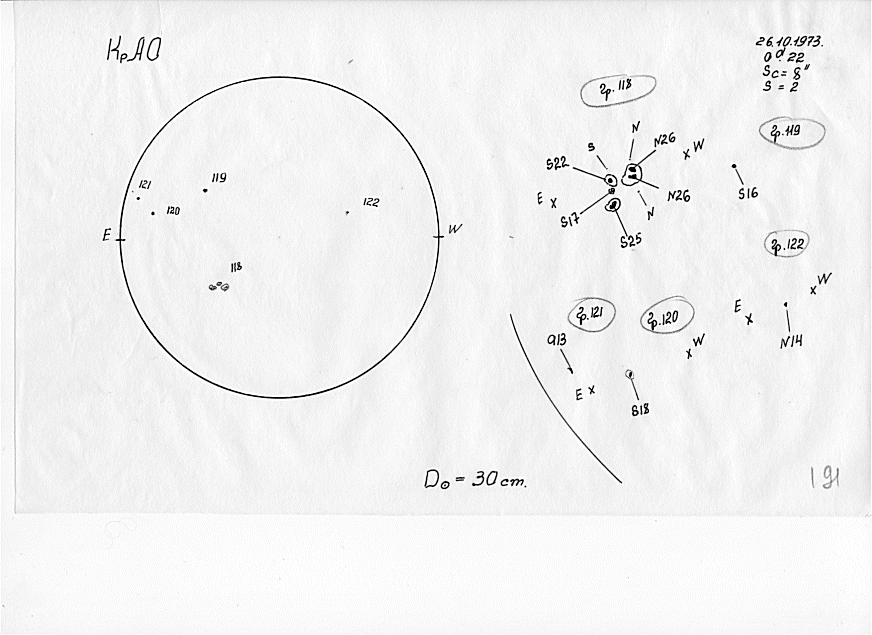 КрАО
26.10.1973.
0ᵈ.22
Sc = 8"
S = 2
гр.118
гр.119
N
S
N26
W
S22
E
S17
N26
N
S25
S16
121
119
120
122
E
W
118
гр.122
W
E
N14
гр.121
гр.120
α13
W
E
S18
D⊙ = 30 cm.
191